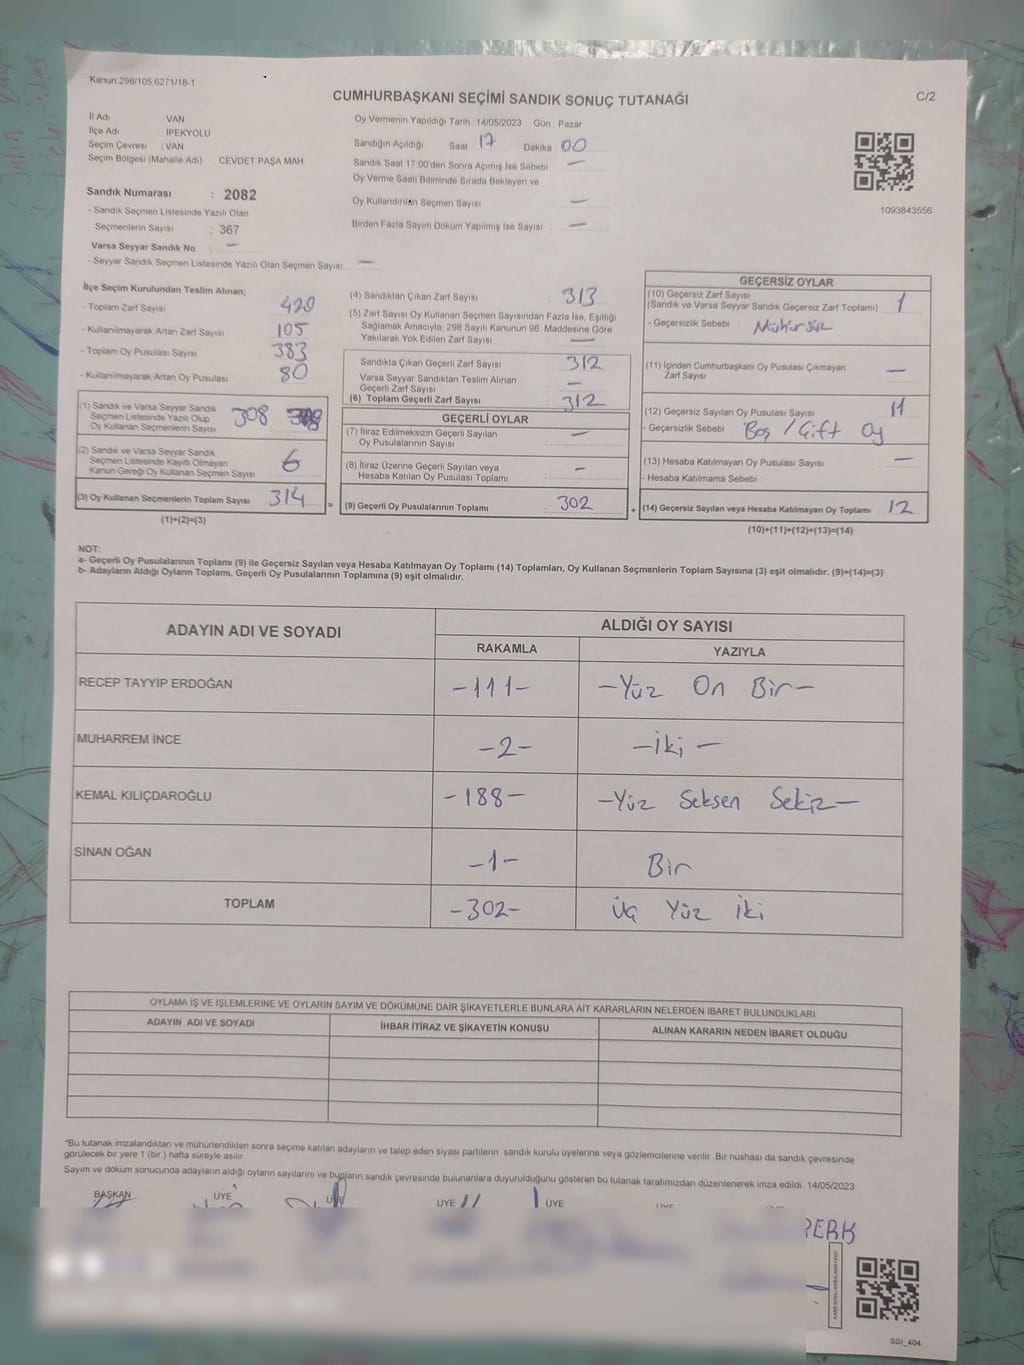 Kanun:298/105;6271/18-1
CUMHURBAŞKANI SEÇİMİ SANDIK SONUÇ TUTANAĞI
C/2
İl Adı VAN
İlçe Adı İPEKYOLU
Seçim Çevresi : VAN
Seçim Bölgesi (Mahalle Adı) : CEVDET PAŞA MAH.
Oy Vermenin Yapıldığı Tarih : 14/05/2023 Gün : Pazar
Sandığın Açıldığı Saat : 17 Dakika : 00
Sandık Saat 17:00'den Sonra Açımış İse Sebebi : —
Oy Verme Saati Bitiminde Sırada Bekleyen ve
Oy Kullandırılan Seçmen Sayısı : —
Birden Fazla Sayım Döküm Yapılmış İse Sayısı : —
1093843556
Sandık Numarası : 2082
- Sandık Seçmen Listesinde Yazılı Olan
Seçmenlerin Sayısı : 367
Varsa Seyyar Sandık No : —
- Seyyar Sandık Seçmen Listesinde Yazılı Olan Seçmen Sayısı: —
İlçe Seçim Kurulundan Teslim Alınan;
- Toplam Zarf Sayısı : 420
- Kullanılmayarak Artan Zarf Sayısı : 105
- Toplam Oy Pusulası Sayısı : 383
- Kullanılmayarak Artan Oy Pusulası : 80
(1) Sandık ve Varsa Seyyar Sandık
Seçmen Listesinde Yazılı Olup
Oy Kullanan Seçmenlerin Sayısı 308
(2) Sandık ve Varsa Seyyar Sandık
Seçmen Listesinde Kayıtlı Olmayan
Kanun Gereği Oy Kullanan Seçmen Sayısı : 6
(3) Oy Kullanan Seçmenlerin Toplam Sayısı : 314
(1)+(2)=(3)
=
(4) Sandıktan Çıkan Zarf Sayısı : 313
(5) Zarf Sayısı Oy Kullanan Seçmen Sayısından Fazla İse, Eşitliği
Sağlamak Amacıyla; 298 Sayılı Kanunun 98. Maddesine Göre
Yakılarak Yok Edilen Zarf Sayısı : —
Sandıkta Çıkan Geçerli Zarf Sayısı : 312
Varsa Seyyar Sandıktan Teslim Alınan
Geçerli Zarf Sayısı : —
(6) Toplam Geçerli Zarf Sayısı : 312
GEÇERLİ OYLAR
(7) İtiraz Edilmeksizin Geçerli Sayılan
Oy Pusulalarının Sayısı : —
(8) İtiraz Üzerine Geçerli Sayılan veya
Hesaba Katılan Oy Pusulası Toplamı : —
(9) Geçerli Oy Pusulalarının Toplamı : 302
+
GEÇERSİZ OYLAR
(10) Geçersiz Zarf Sayısı
(Sandık ve Varsa Seyyar Sandık Geçersiz Zarf Toplamı) : 1
- Geçersizlik Sebebi : Mühürsüz
(11) İçinden Cumhurbaşkanı Oy Pusulası Çıkmayan
Zarf Sayısı : —
(12) Geçersiz Sayılan Oy Pusulası Sayısı : 11
- Geçersizlik Sebebi : Boş / Çift Oy
(13) Hesaba Katılmayan Oy Pusulası Sayısı : —
- Hesaba Katılmama Sebebi :
(14) Geçersiz Sayılan veya Hesaba Katılmayan Oy Toplamı : 12
(10)+(11)+(12)+(13)=(14)
NOT:
a- Geçerli Oy Pusulalarının Toplamı (9) ile Geçersiz Sayılan veya Hesaba Katılmayan Oy Toplamı (14) Toplamları, Oy Kullanan Seçmenlerin Toplam Sayısına (3) eşit olmalıdır. (9)+(14)=(3)
b- Adayların Aldığı Oyların Toplamı, Geçerli Oy Pusulalarının Toplamına (9) eşit olmalıdır.
ADAYIN ADI VE SOYADI
ALDIĞI OY SAYISI
RAKAMLA YAZIYLA
RECEP TAYYİP ERDOĞAN -111- -Yüz On Bir-
MUHARREM İNCE -2- -İki-
KEMAL KILIÇDAROĞLU -188- -Yüz Seksen Sekiz-
SİNAN OĞAN -1- Bir
TOPLAM -302- Üç Yüz İki
OYLAMA İŞ VE İŞLEMLERİNE VE OYLARIN SAYIM VE DÖKÜMÜNE DAİR ŞİKAYETLERLE BUNLARA AİT KARARLARIN NELERDEN İBARET BULUNDUKLARI
ADAYIN ADI VE SOYADI İHBAR İTİRAZ VE ŞİKAYETİN KONUSU ALINAN KARARIN NEDEN İBARET OLDUĞU
*Bu tutanak imzalandıktan ve mühürlendikten sonra seçime katılan adayların ve talep eden siyasi partilerin sandık kurulu üyelerine veya gözlemcilerine verilir. Bir nüshası da sandık çevresinde
görülecek bir yere 1 (bir) hafta süreyle asılır.
Sayım ve döküm sonucunda adayların aldığı oyların sayılarını ve bunların sandık çevresinde bulunanlara duyurulduğunu gösteren bu tutanak tarafımızdan düzenlenerek imza edildi. 14/05/2023
BAŞKAN ÜYE ÜYE ÜYE ÜYE
SSI_404